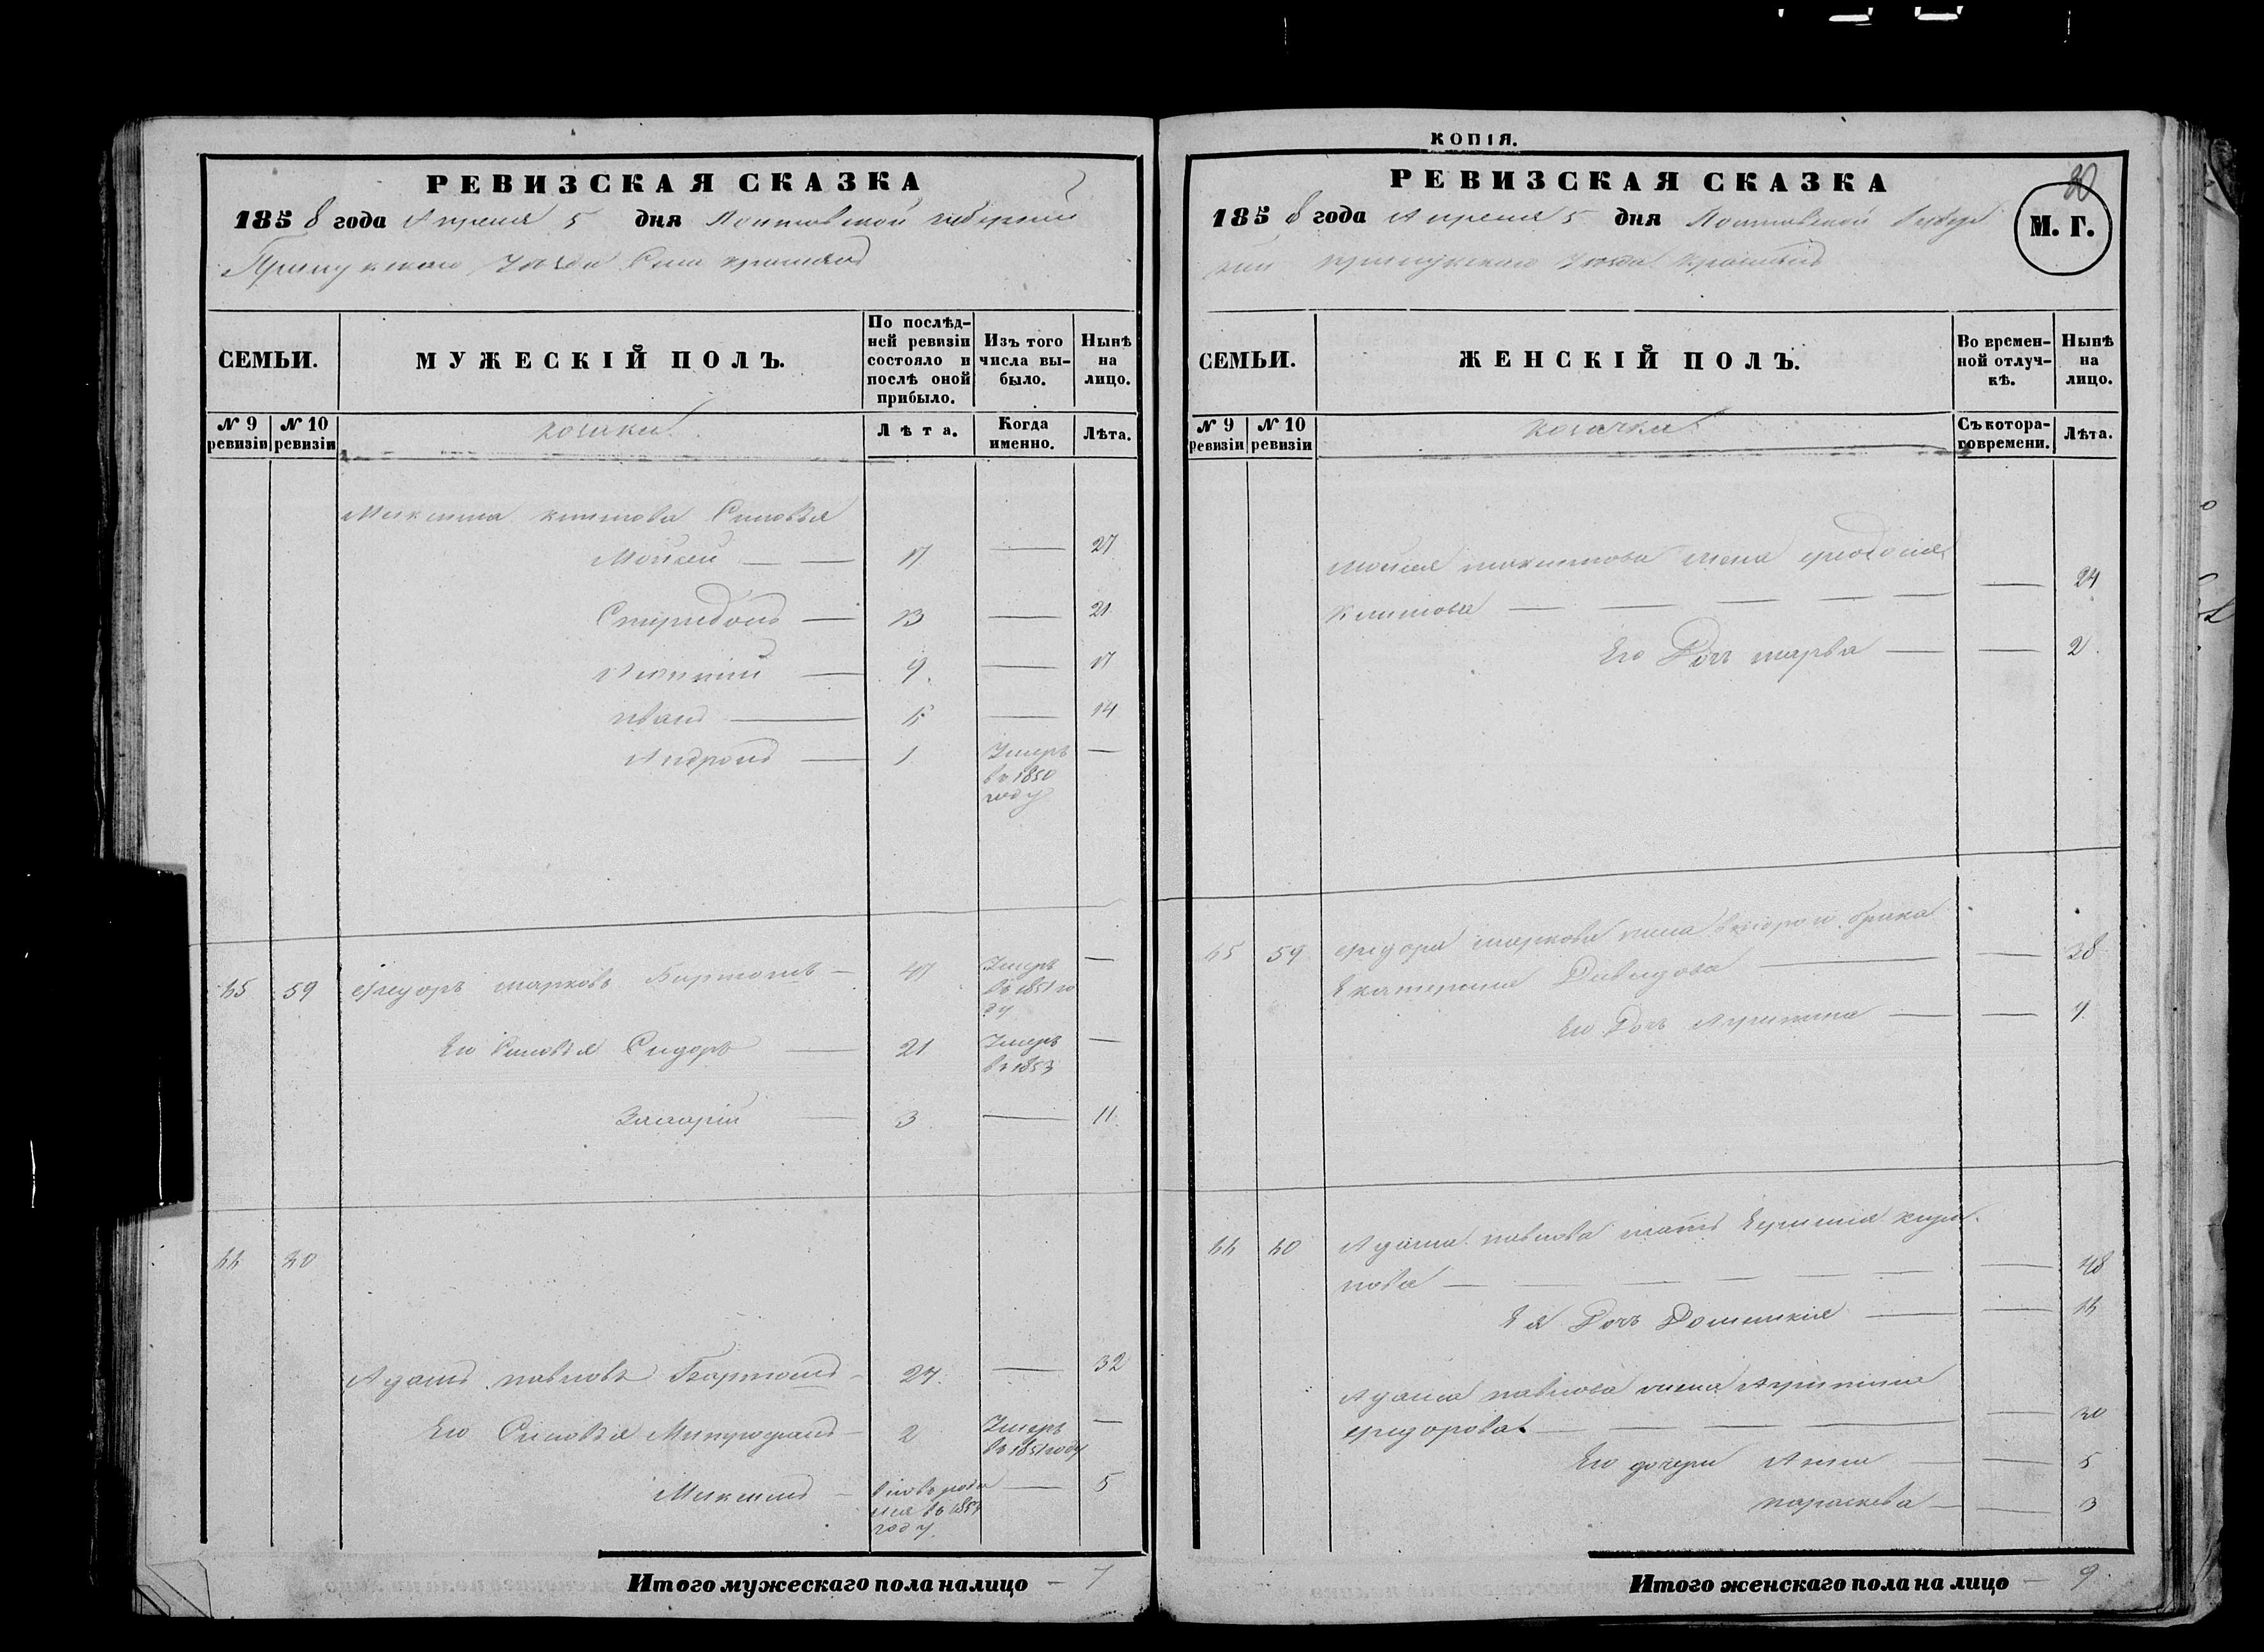 РЕВИЗСКАЯ СКАЗКА
1858 года Апреля 5 дня Полтавской губернии
Прилукскаго Уезда Села
СЕМЬИ.
МУЖЕСКІЙ ПОЛЪ.
По послѣд-
ней ревизіи
состояло и
послѣ оной
прибыло.
Изъ того
числа вы-
было.
Нынѣ
на
лицо.
№ 9
ревизіи
№ 10
ревизіи
козаки
Лѣта.
Когда
именно.
Лѣта.
Максима климова Синовья
Мойсей — — 17 — 27
Спиридонъ — 13 — 21
— 9 — 17
иванъ — — 14
Андронъ — 1 Умеръ —
въ 1850
году
59 Федоръ марковъ Умеръ —
въ 1851 го
ду
Его Синовья Сидоръ — 21 Умеръ —
въ 1853
— 3 — 11
Адамъ павловъ — 32
Его Синовья Митрофанъ — 2 Умеръ —
въ 1851 году
Максимъ — — 5
году
Итого мужескаго пола налицо — 7
КОПІЯ.
РЕВИЗСКАЯ СКАЗКА
1858 года Апреля 5 дня Полтавской Губер
нии прилукскаго Уезда
М. Г.
СЕМЬИ.
ЖЕНСКІЙ ПОЛЪ.
Во времен-
ной отлуч-
кѣ.
Нынѣ
на
лицо.
№ 9
ревизіи
№ 10
ревизіи
козачки
Съ котора-
го времени.
Лѣта.
Мойсея максимова жена феодосия
Климова — — — — — — 24
Его Дочъ марѳа — — 2
59 федора маркова жена второго брака
Екатерина Давидова — — 38
Его Дочъ Агрипина — —
Адама павлова мать
пова — — — — — — 48
Ея Дочъ Доминикия — —
Адама павлова жена Агрипина
федорова — — — 30
Его дочери Анна — — 5
параскева — — 3
Итого женскаго пола на лицо — 9